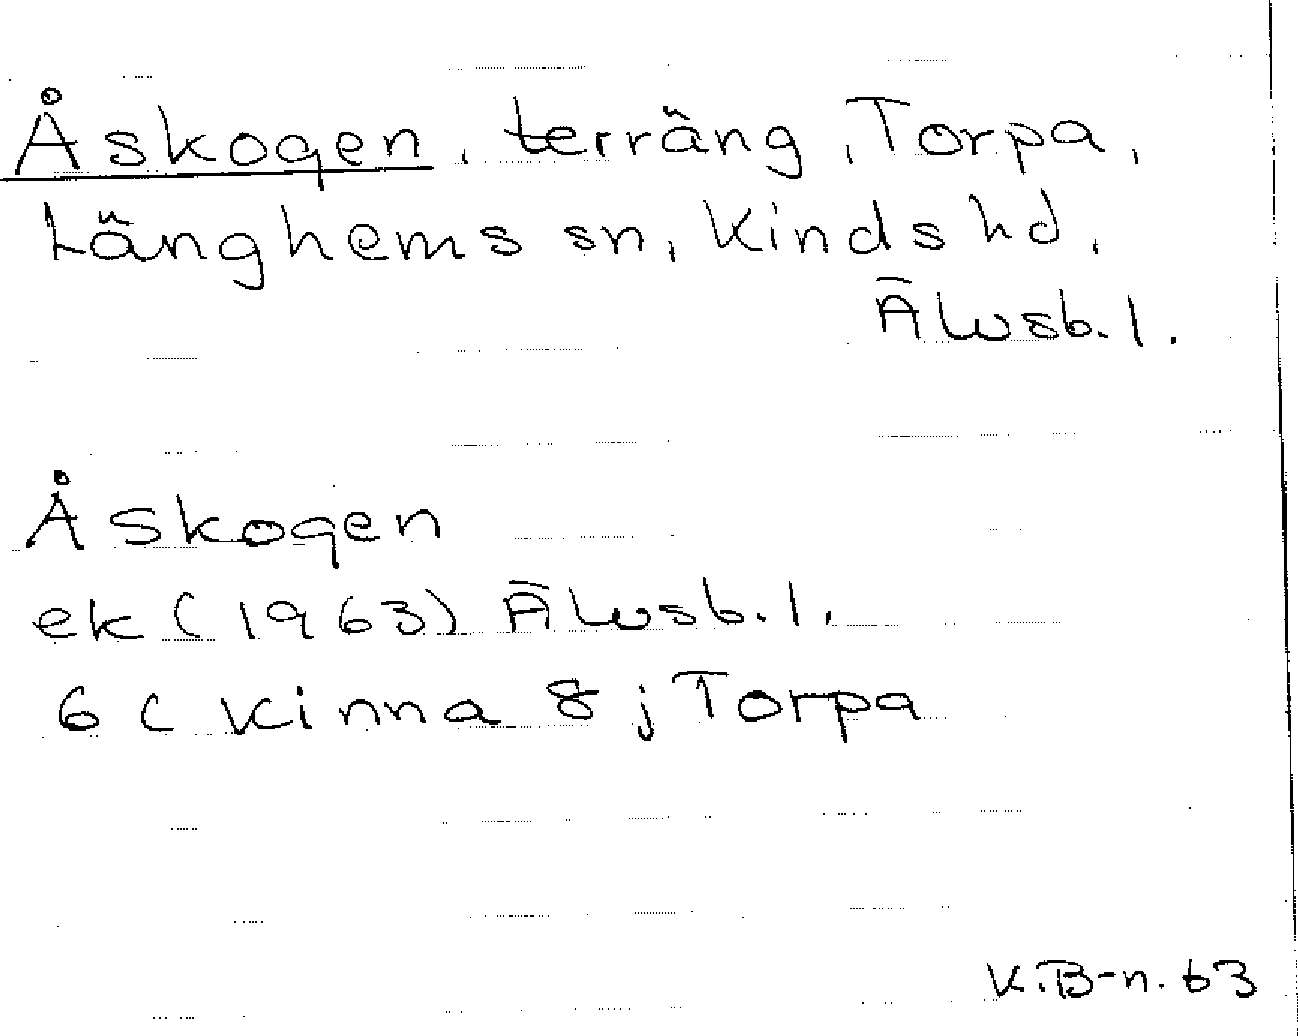 Åskogen, terräng, Torpa,
Länghems sn, Kinds hd,
Älvsb. l.
Åskogen
ek (1963) Älvsb. l.
6 C Kinna 8 j Torpa
K.B-n. 63